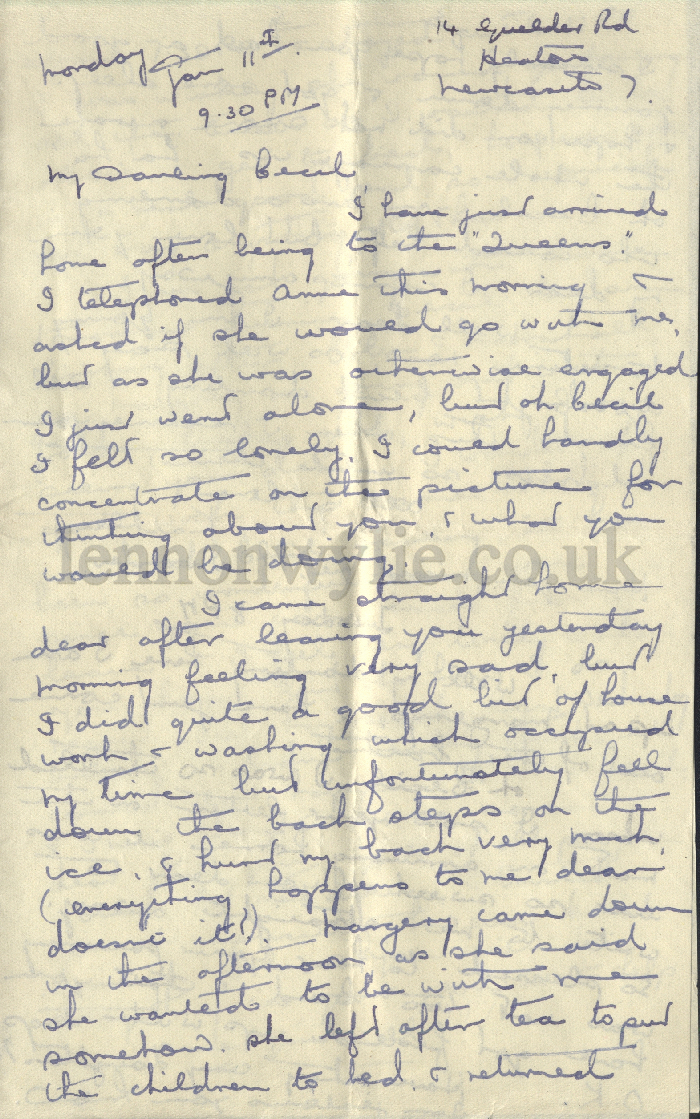 14 Guelder Rd
Monday Jan 11th. Heaton
9.30 PM Newcastle 7.
My Darling Cecil
I have just arrived
home after being to the "Queens".
I telephoned Anne this morning &
asked if she would go with me,
but as she was otherwise engaged
I just went alone, but oh Cecil
I felt so lonely. I could hardly
concentrate on the picture for
thinking about you, & what you
would be doing.
lennonwylie.co.uk
I came straight home
dear after leaving you yesterday
morning feeling very sad, but
I did quite a good bit of house
work & washing which occupied
my time but unfortunately fell
down the back steps on the
ice, & hurt my back very much,
(everything happens to me dear
doesn't it!). Margery came down
in the afternoon as she said
she wanted to be with me
somehow. She left after tea to put
the children to bed, & returned